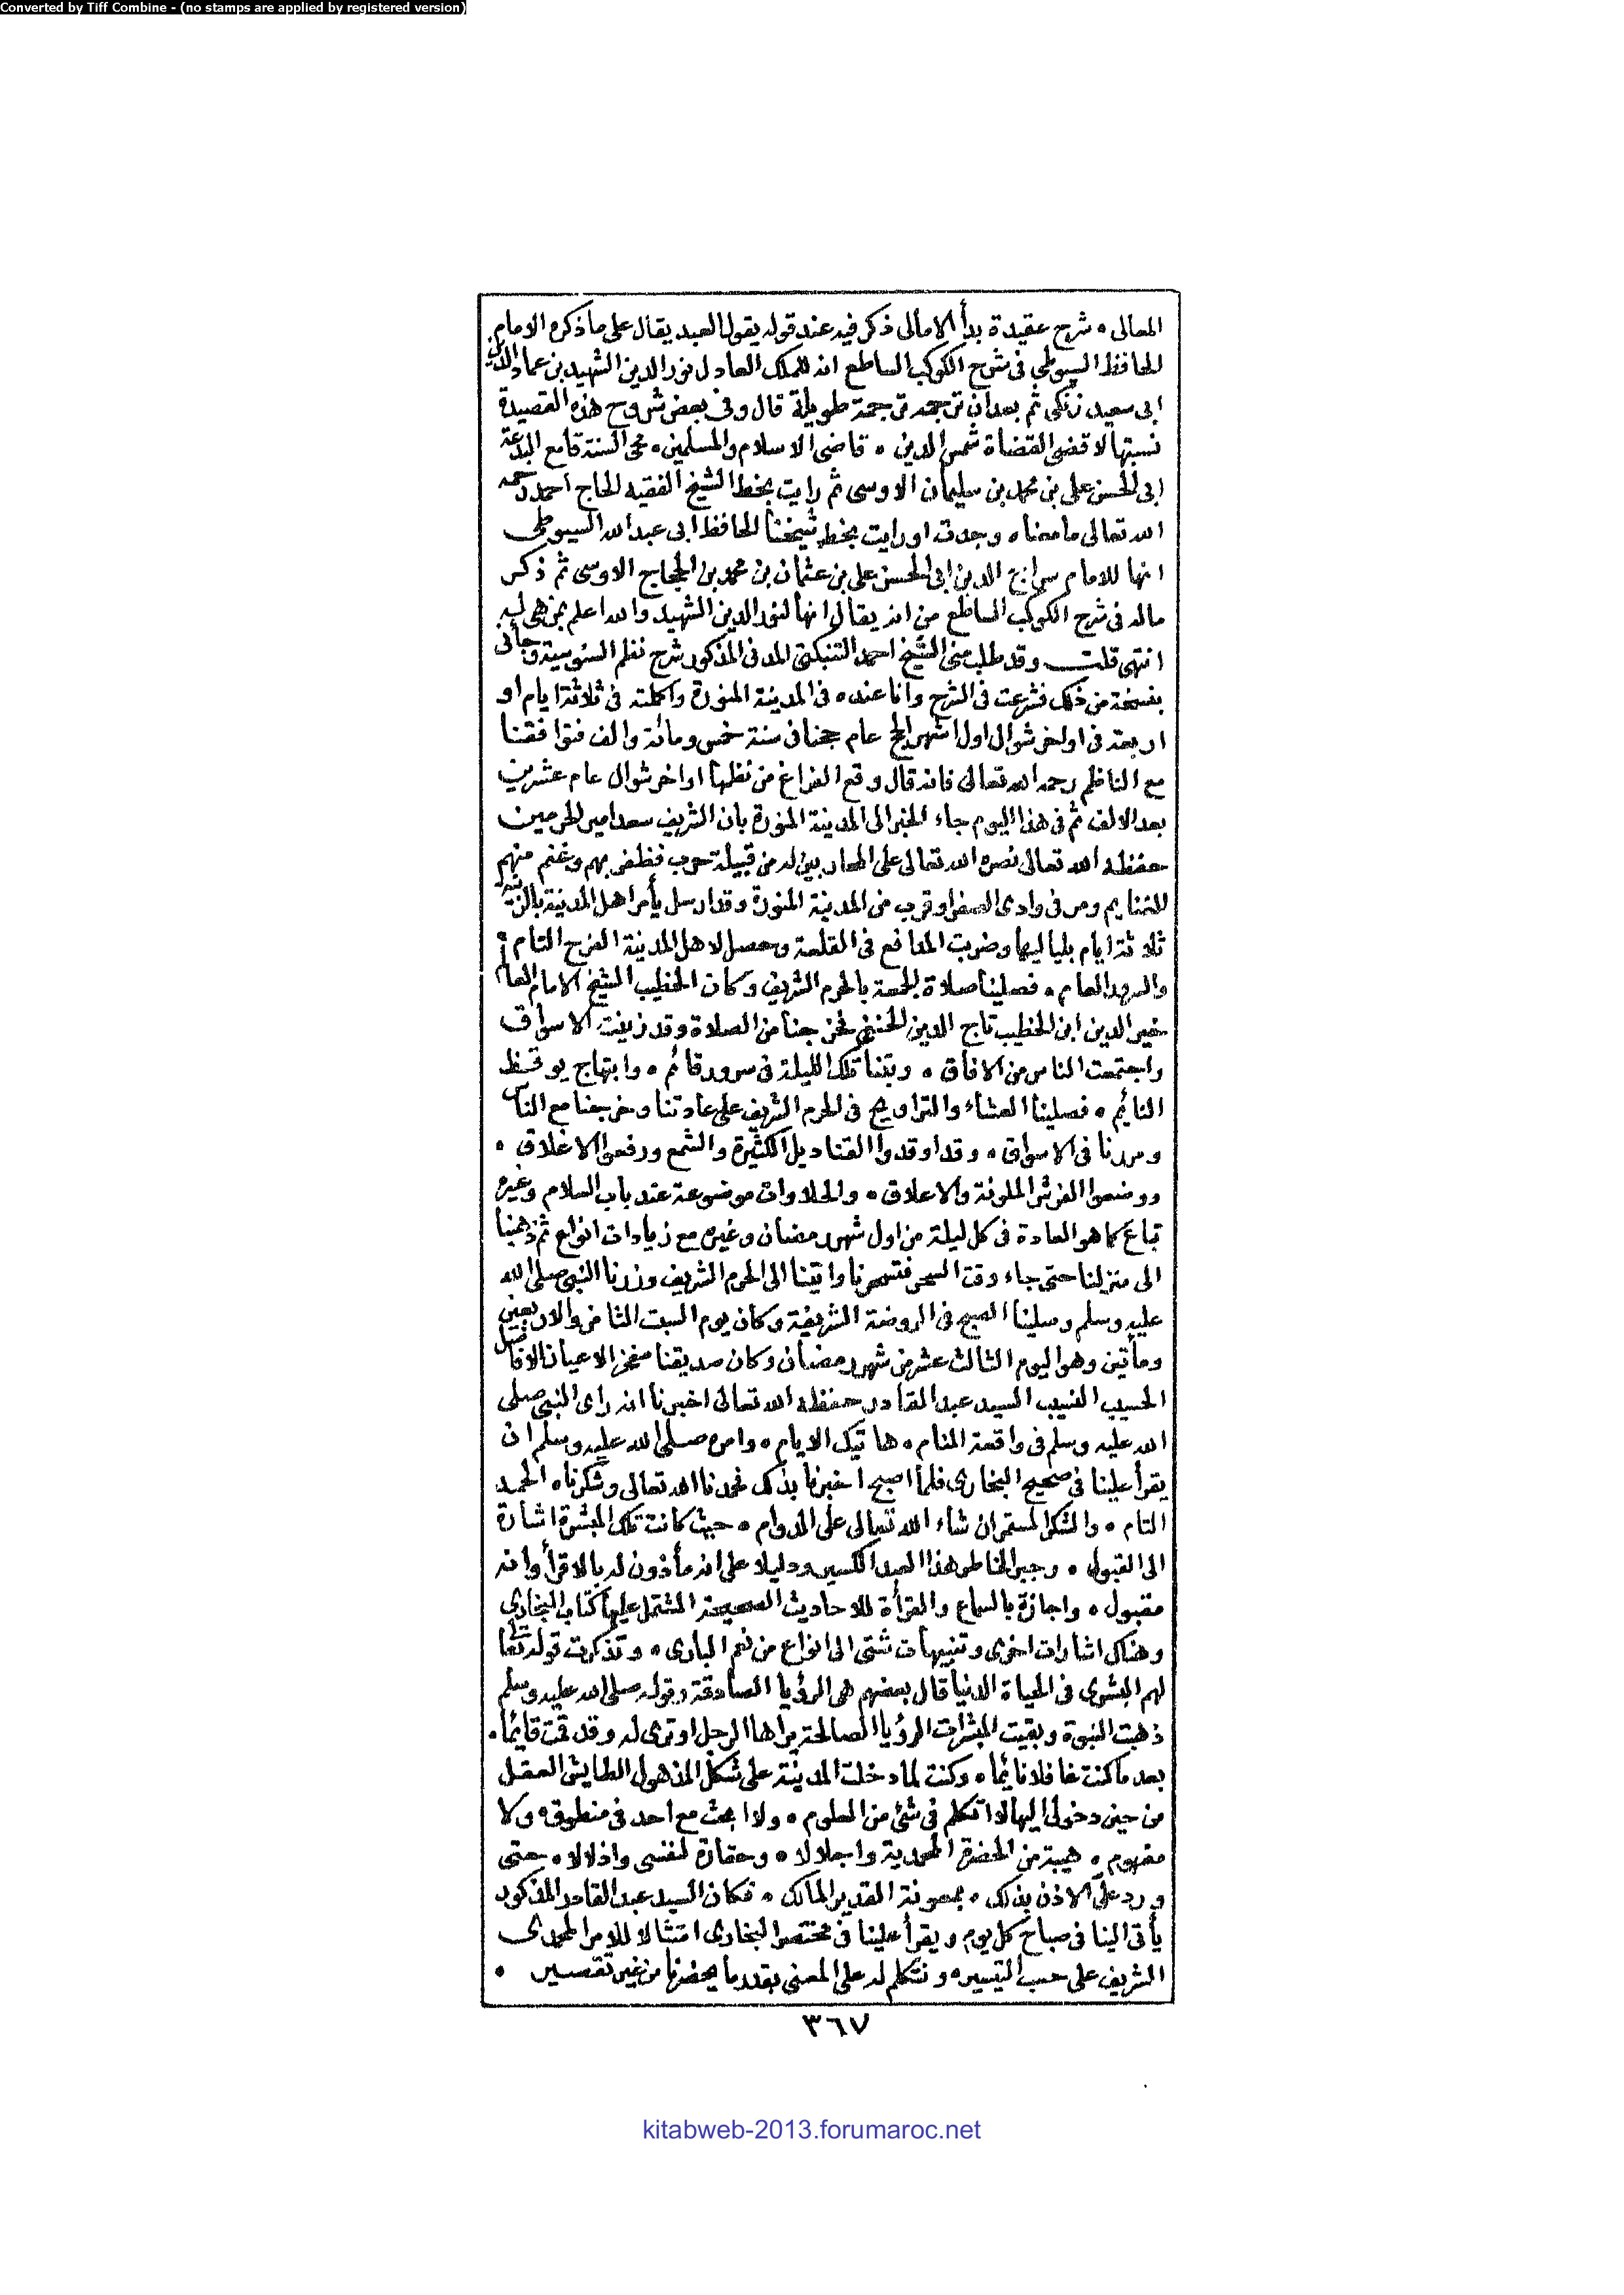 Converted by Tiff Combine - (no stamps are applied by registered version)
المعالى ٠ شرح عقيدة بدأ الامالى ذكر فيه عند قوله يقول العبد يقال على ما ذكره الامام
الحافظ السيوطى فى شرح الكوكب الساطع انه للملك العادل نور الدين الشهيد بن عماد الدين
ابى سعيد زنكى ثم بعد ان ترجمه ترجمة طويلة قال وفى بعض شروح هذه القصيدة
نسبتها لاقضى القضاة شمس الدين ٠ قاضى الاسلام والمسلمين ٠ محى السنة قامع البدعة
ابى الحسن على بن محمد بن سليمان الاوسى ثم رايت بخط الشيخ الفقيه الحاج احمد رحمه
الله تعالى ما معناه وجدت او رايت بخط شيخنا الحافظ ابى عبد الله السيوطى
انها للامام سراج الدين ابى الحسن على بن عثمان بن محمد بن الحجاج الاوسى ثم ذكر
ماله فى شرح الكوكب الساطع من انه يقال انها لنور الدين الشهيد والله اعلم بمن هى له
انتهى قلت وقد طلب منى الشيخ احمد التنبكتى المدنى المذكور شرح نظم السنوسية وجأنى
بنسخة من ذلك فشرعت فى الشرح وانا عنده فى المدينة المنورة واكملته فى ثلاثة ايام او
اربعة فى اواخر شوال اول اشهر الحج عام حجنا فى سنة خمس ومائة والف فتوافقنا
مع الناظم رحمه الله تعالى فانه قال وقع الفراغ من نظمها اواخر شوال عام عشرين
بعد الالف ثم فى هذا اليوم جاء الخبر الى المدينة المنورة بان الشريف سعد امير الحرمين
حفظه الله تعالى نصره الله تعالى على المحاربين له من قبيلة حرب فظفر بهم وغنم منهم
للغنايم ومر فى وادى الصفرا وقرب من المدينة المنورة وقد ارسل يأمر اهل المدينة بالزينة
ثلاثة ايام بلياليها وضربت المدافع فى القلعة وحصل لاهل المدينة الفرح التام
والسرور العام ٠ فصلينا صلاة الجمعة بالحرم الشريف وكان الخطيب الشيخ الامام العام
خير الدين ابن الخطيب تاج الدين الحنفى فخرجنا من الصلاة وقد زينت الاسواق
واجتمعت الناس من الافاق ٠ وبتنا تلك الليلة فى سرور قائم ٠ وابتهاج يوقظ
النائم ٠ فصلينا العشاء والتراويح فى الحرم الشريف على عادتنا وخرجنا مع الناس
ومررنا فى الاسواق ٠ وقد اوقدوا القناديل الكثيرة والشمع ورفعوا الاغلاق ٠
ووضعوا الفرش الملونة والاعلاق ٠ والحلاوات موضوعة عند باب السلام وغيره
تباع كما هو العادة فى كل ليلة من اول شهر رمضان وغيره مع زيادات انواع ثم ذهبنا
الى منزلنا حتى جاء وقت السحر فتسحرنا واتينا الى الحرم الشريف وزرنا النبى صلى الله
عليه وسلم وصلينا الصبح فى الروضة الشريفة وكان يوم السبت الثامن والاربعين
ومأتين وهو اليوم الثالث عشر من شهر رمضان وكان صديقنا مفخر الاعيان الافاضل
الحسيب النسيب السيد عبد القادر حفظه الله تعالى اخبرنا انه راى النبى صلى
الله عليه وسلم فى واقعة المنام ٠ هاتيك الايام ٠ وامره صلى الله عليه وسلم ان
يقرأ علينا فى صحيح البخارى فلما اصبح اخبرنا بذلك فحمدنا الله تعالى وشكرناه الحمد
التام ٠ والشكر المستمر ان شاء الله تعالى على الدوام ٠ حيث كانت تلك المبشرة اشارة
الى القبول ٠ وجبر الخاطر هذا العبد الكسير ودليلا على انه مأذون له بالاقرأ وانه
مقبول ٠ واجازة بالسماع والقرأة للاحاديث الصحيحة المشتمل عليها كتاب البخارى
وهناك اشارات اخرى وتنبيهات شتى الى انواع من نعم البارى ٠ وتذكرت قوله تعالى
لهم البشرى فى الحياة الدنيا قال بعضهم هى الرؤيا الصادقة وقوله صلى الله عليه وسلم
ذهبت النبوة وبقيت المبشرات الرؤيا الصالحة يراها الرجل او ترى له وقد قمت قايما ٠
بعد ما كنت غافلا نايما ٠ وكنت لما دخلت المدينة على شكل المذهول الطايش العقل
من حين دخولى اليها لا اتكلم فى شئ من العلوم ٠ ولا ابحث مع احد فى منطوق ٠ ولا
مفهوم ٠ هيبة من الحضرة المحمدية واجلالا ٠ وحقارة لنفسى واذلالا ٠ حتى
ورد علىّ الاذن بذلك ٠ بمعونة القدير المالك ٠ فكان السيد عبد القادر المذكور
يأتى الينا فى صباح كل يوم ويقرأ علينا فى مختصر البخارى امتثالا للامر المحمدى
الشريف على حسب التيسير ٠ ونتكلم له على المعنى بقدر ما يحضرنا من غير تقصير ٠
٣٦٧
kitabweb-2013.forumaroc.net